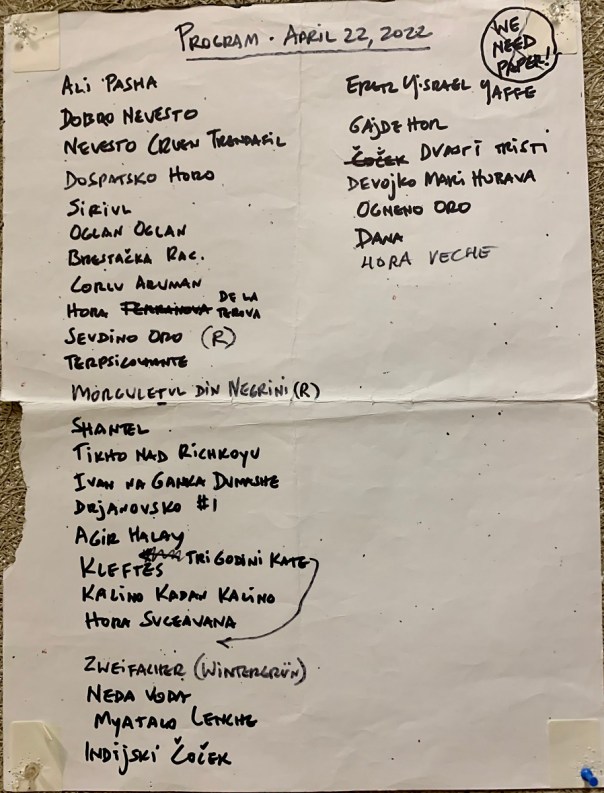 PROGRAM · APRIL 22, 2022
WE
NEED
PAPER!
ALI PASHA
DOBRO NEVESTO
NEVESTO CRVEN TRENDAFIL
DOSPATSKO HORO
SIRIUL
OGLAN OGLAN
BRESTAČKA RAC.
CORLU ARUMAN
HORA FEMRANOVA DE LA
TEROVA
SEVDINO ORO (R)
TERPSICOHANTE
MORCULETUL DIN NEGRINI (R)
SHANTEL
TIKHO NAD RICHKOYU
IVAN NA GANKA DUMASHE
DRJANOVSKO #1
AGIR HALAY
KLEFTES TRI GODINI KATE
KALINO KADAN KALINO
HORA SUCEAVANA
ZWEIFACHER (WINTERGRÜN)
NEDA VODA
MYATALO LENCHE
INDIJSKI ČOČEK
ERETZ YISRAEL YAFFE
GAJDE HOR
ČOČEK DVAOPTI TRISTI
DEVOJKO MARI HUBAVA
OGNENO ORO
DANA
HORA VECHE